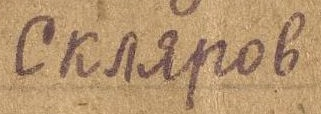 Скляров